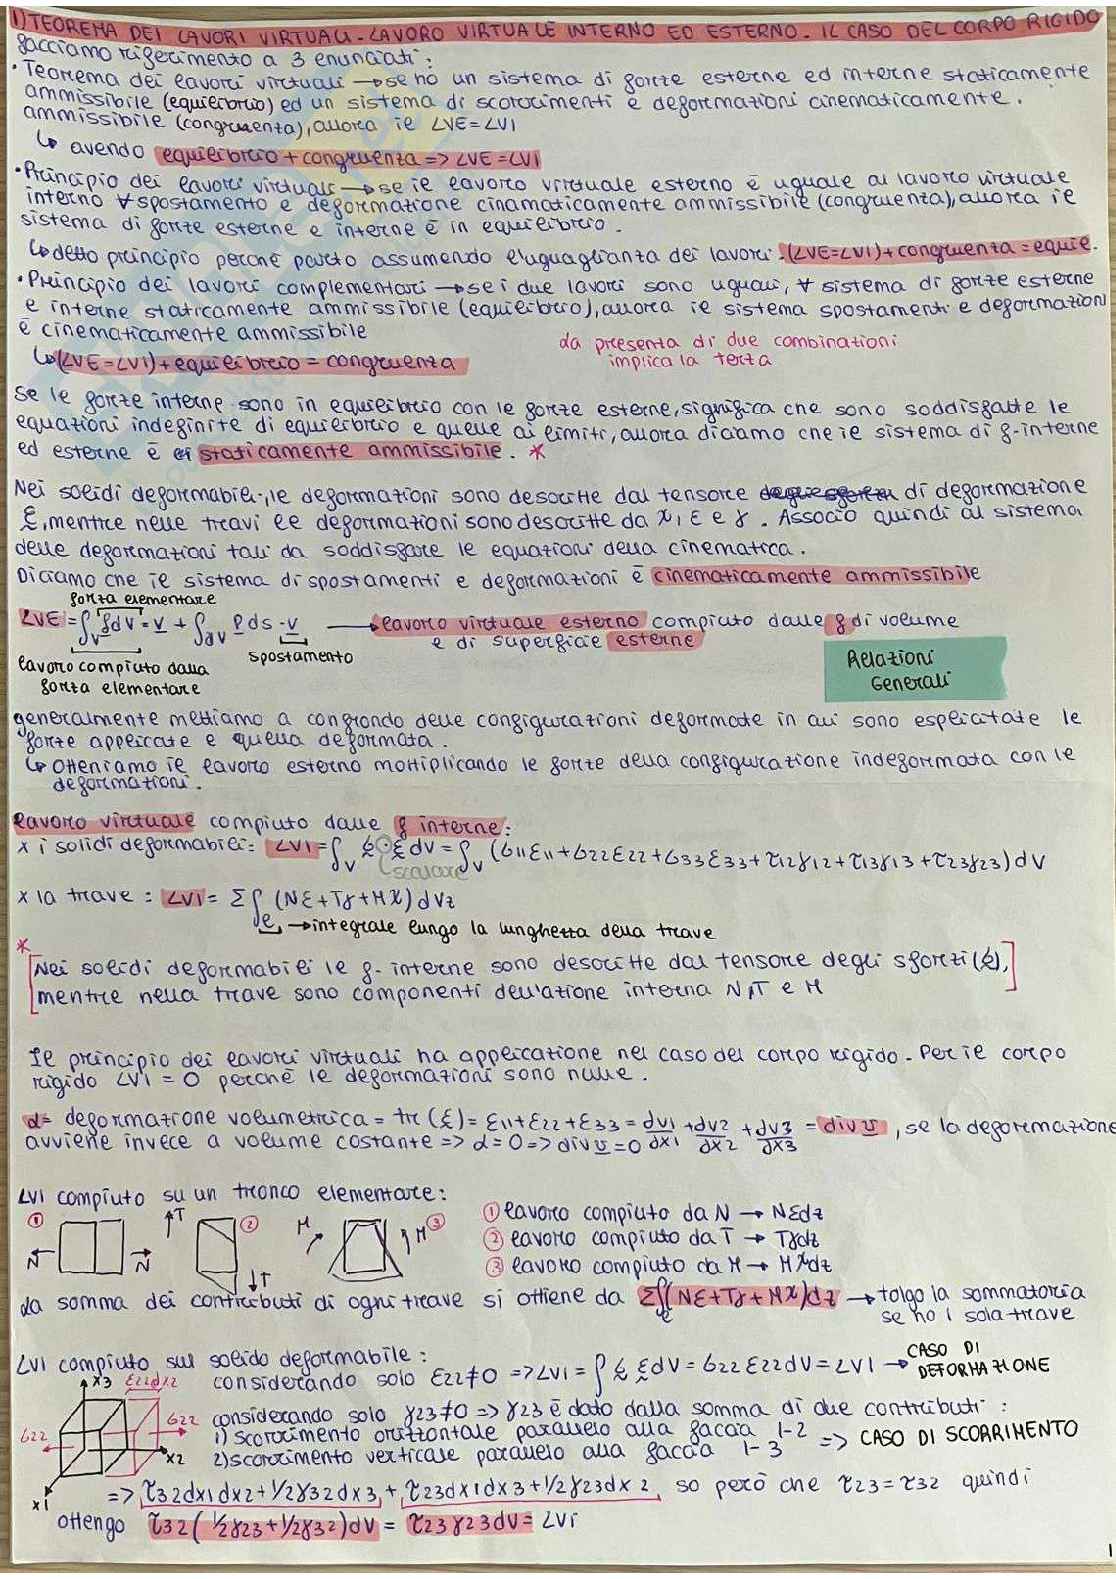 1) TEOREMA DEI LAVORI VIRTUALI - LAVORO VIRTUALE INTERNO ED ESTERNO. IL CASO DEL CORPO RIGIDO
facciamo riferimento a 3 enunciati:
• Teorema dei lavori virtuali → se ho un sistema di forze esterne ed interne staticamente
ammissibile (equilibrio) ed un sistema di scorrimenti e deformazioni cinematicamente.
ammissibile (congruenza), allora il LVE=LVI
↳ avendo equilibrio + congruenza => LVE=LVI
• Principio dei lavori virtuali → se il lavoro virtuale esterno è uguale al lavoro virtuale
interno ∀ spostamento e deformazione cinamaticamente ammissibile (congruenza), allora il
sistema di forze esterne e interne è in equilibrio.
↳ detto principio perché parto assumendo l'uguaglianza dei lavori. (LVE=LVI)+congruenza = equil.
• Principio dei lavori complementari → se i due lavori sono uguali, ∀ sistema di forze esterne
e interne staticamente ammissibile (equilibrio), allora il sistema spostamenti e deformazioni
è cinematicamente ammissibile
↳ (LVE=LVI)+equilibrio = congruenza
La presenza di due combinazioni
implica la terza
se le forze interne sono in equilibrio con le forze esterne, significa che sono soddisfatte le
equazioni indefinite di equilibrio e quelle ai limiti, allora diciamo che il sistema di f. interne
ed esterne è staticamente ammissibile. *
Nei solidi deformabili, le deformazioni sono descritte dal tensore di deformazione
ε, mentre nelle travi le deformazioni sono descritte da χ, ε e γ. Associo quindi al sistema
delle deformazioni tali da soddisfare le equazioni della cinematica.
Diciamo che il sistema di spostamenti e deformazioni è cinematicamente ammissibile
forza elementare
LVE = ∫v f dV · v + ∫∂v p ds · v → lavoro virtuale esterno compiuto dalle f di volume
e di superficie esterne
lavoro compiuto dalla
forza elementare
spostamento
Relazioni
Generali
generalmente mettiamo a confronto delle configurazioni deformate in cui sono esplicitate le
forze applicate e quella deformata.
↳ Otteniamo il lavoro esterno moltiplicando le forze della configurazione indeformata con le
deformazioni.
lavoro virtuale compiuto dalle f interne:
x i solidi deformabili: LVI = ∫v σ · ε dV = ∫v (σ11ε11+σ22ε22+σ33ε33+τ12γ12+τ13γ13+τ23γ23) dV
scalare
x la trave: LVI = Σ∫ℓ (Nε+Tγ+Mχ) dVz
→ integrale lungo la lunghezza della trave
*
[Nei solidi deformabili le f. interne sono descritte dal tensore degli sforzi (σ),
mentre nella trave sono componenti dell'azione interna N, T e M]
Il principio dei lavori virtuali ha applicazione nel caso del corpo rigido. Per il corpo
rigido LVI = 0 perché le deformazioni sono nulle.
α = deformazione volumetrica = tr(ε) = ε11+ε22+ε33 = dv1/dx1 + dv2/dx2 + dv3/dx3 = div v, se la deformazione
avviene invece a volume costante => α=0 => div v=0
LVI compiuto su un tronco elementare:
① N N
② T T
③ M M
① lavoro compiuto da N → Nεdz
② lavoro compiuto da T → Tγdz
③ lavoro compiuto da M → Mχdz
La somma dei contributi di ogni trave si ottiene da Σ∫ℓ(Nε+Tγ+Mχ)dz → tolgo la sommatoria
se ho 1 sola trave
LVI compiuto sul solido deformabile:
considerando solo ε22≠0 => LVI = ∫ σ ε dV = σ22 ε22 dV = LVI → CASO DI
DEFORMAZIONE
x3 ε22dx2
σ22 σ22
x2
x1
considerando solo γ23≠0 => γ23 è dato dalla somma di due contributi:
1) scorrimento orizzontale parallelo alla faccia 1-2
2) scorrimento verticale parallelo alla faccia 1-3 => CASO DI SCORRIMENTO
=> τ32dx1dx2+1/2γ32dx3 + τ23dx1dx3+1/2γ23dx2 so però che τ23=τ32 quindi
ottengo τ32(1/2γ23+1/2γ32)dV = τ23γ23dV = LVI
1